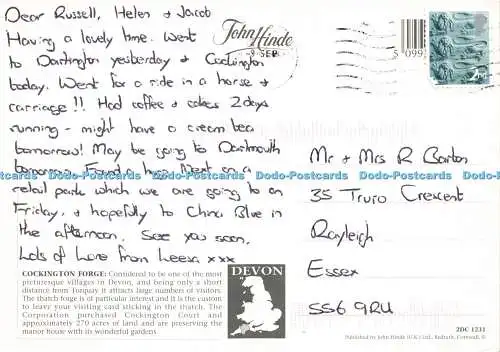 Dear Russell, Helen & Jacob
Having a lovely time. Went
to Dartington yesterday & Cockington
today. Went for a ride in a horse &
carriage!! Had coffee & cakes 2 days
running - might have a cream tea
tomorrow! May be going to Dartmouth
tomorrow. Found a huge Next on a
retail park which we are going to on
Friday, & hopefully to China Blue in
the afternoon. See you soon.
Lots of Love from Leesa xxx
COCKINGTON FORGE: Considered to be one of the most
picturesque villages in Devon, and being only a short
distance from Torquay it affracts large numbers of visitors.
The thatch forge is of particular interest and it is the custom
to leave your visiting card sticking in the thatch. The
Corporation purchased Cockington Court and
approximately 270 acres of land and are preserving the
manor house with its wonderful gardens.
DEVON
John Hinde
9 SEP
5 099
2ND
Mr & Mrs R Barton
35 Truro Crescent
Rayleigh
Essex
SS6 9RU
2DC 1231
Published by John Hinde (U.K.) Ltd., Redruth, Cornwall.
Dodo-Postcards Dodo-Postcards Dodo-Postcards Dodo-Postcards